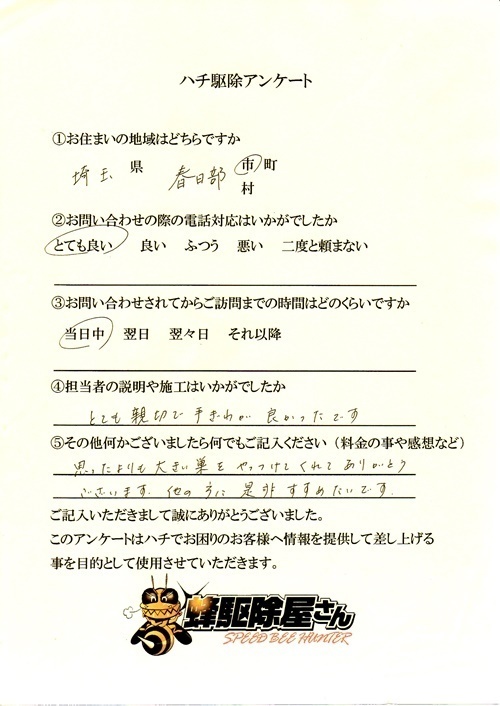 ハチ駆除アンケート
①お住まいの地域はどちらですか
埼玉 県 春日部 市 町
村
②お問い合わせの際の電話対応はいかがでしたか
とても良い 良い ふつう 悪い 二度と頼まない
③お問い合わせされてからご訪問までの時間はどのくらいですか
当日中 翌日 翌々日 それ以降
④担当者の説明や施工はいかがでしたか
とても親切で手ぎわが良かったです
⑤その他何かございましたら何でもご記入ください（料金の事や感想など）
思ったよりも大きい巣をやっつけてくれてありがとう
ございます。他の方に是非すすめたいです。
ご記入いただきまして誠にありがとうございました。
このアンケートはハチでお困りのお客様へ情報を提供して差し上げる
事を目的として使用させていただきます。
蜂駆除屋さん
SPEED BEE HUNTER